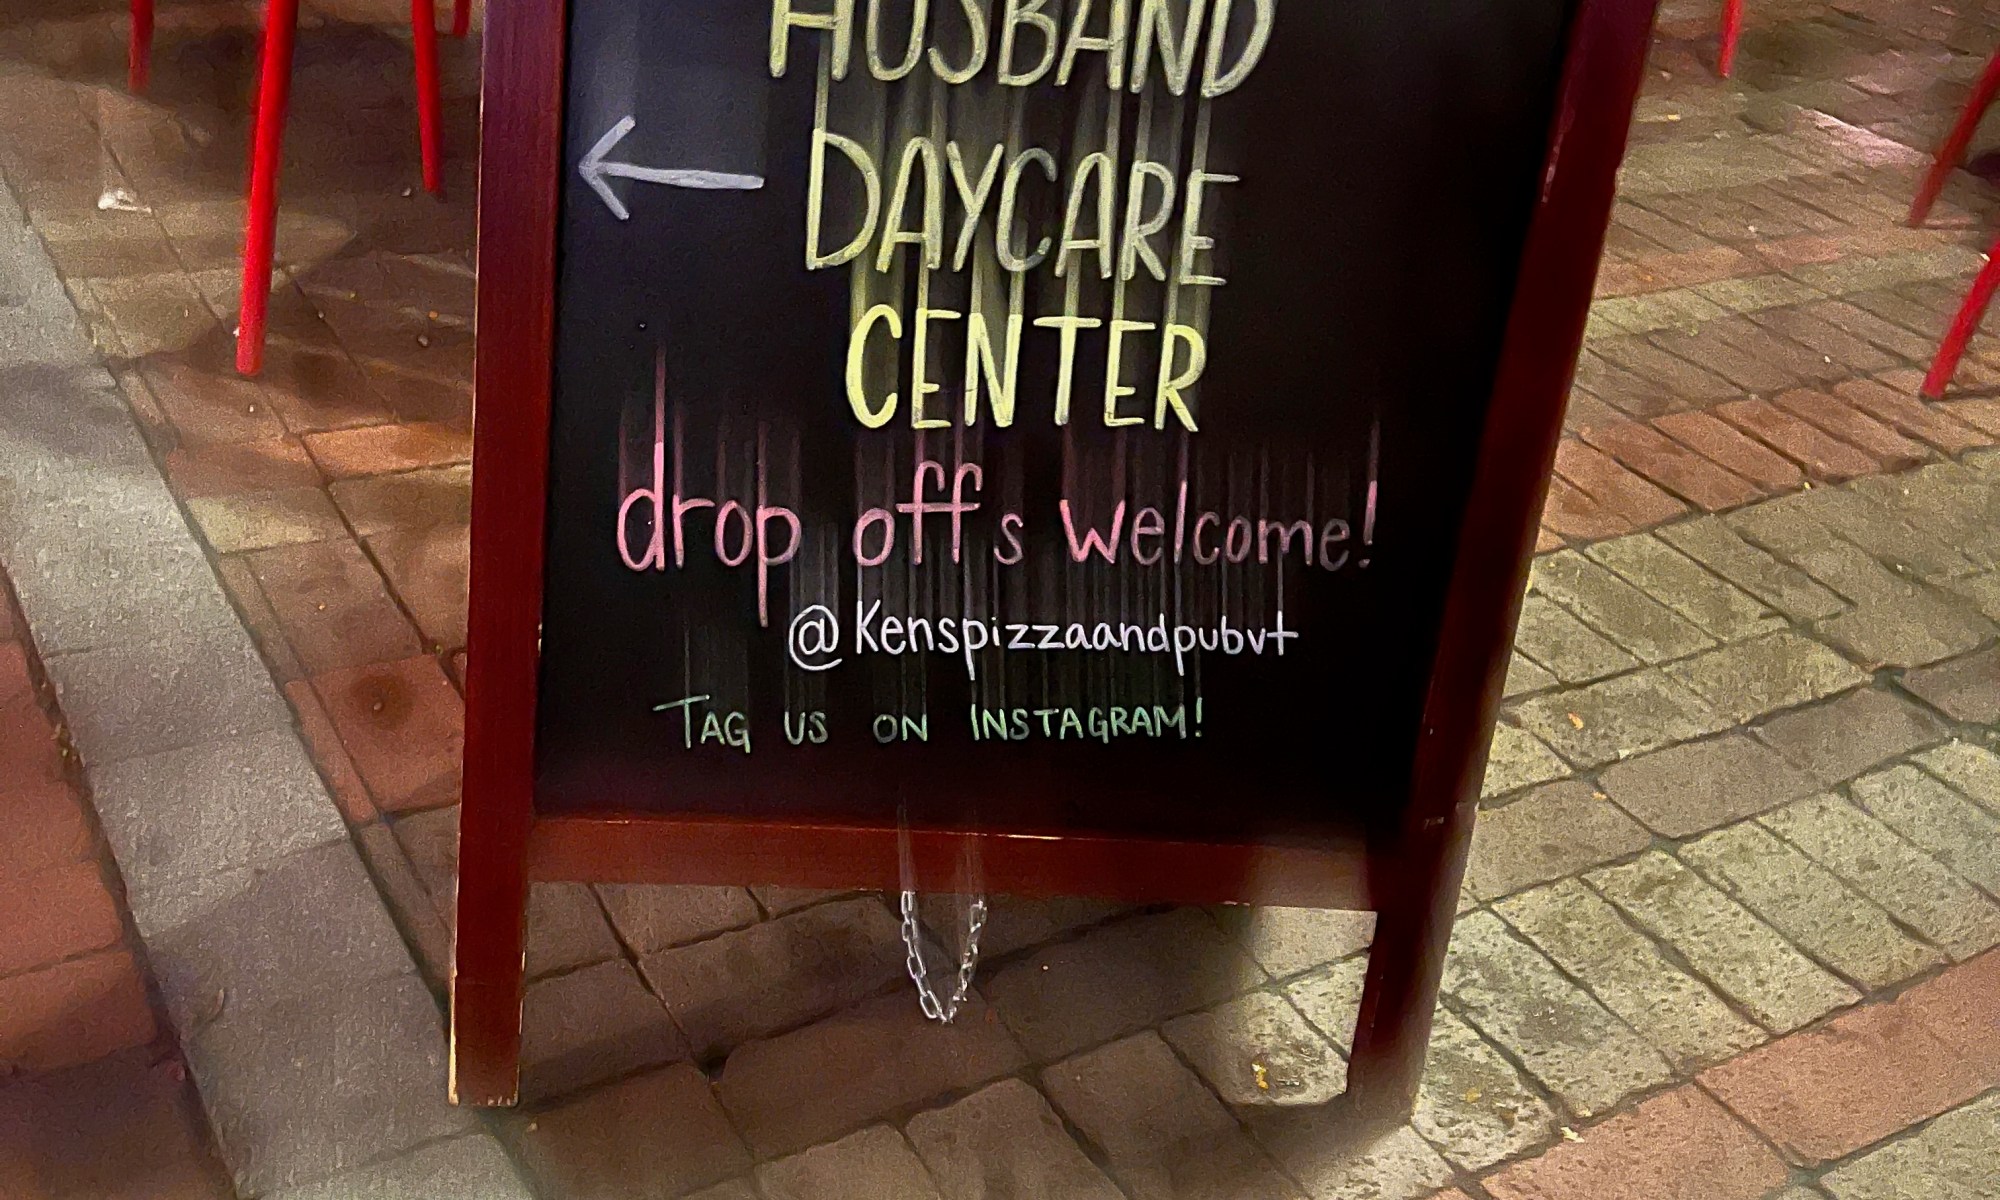 HUSBAND
DAYCARE
CENTER
drop offs welcome!
@Kenspizzaandpubvt
TAG US ON INSTAGRAM!